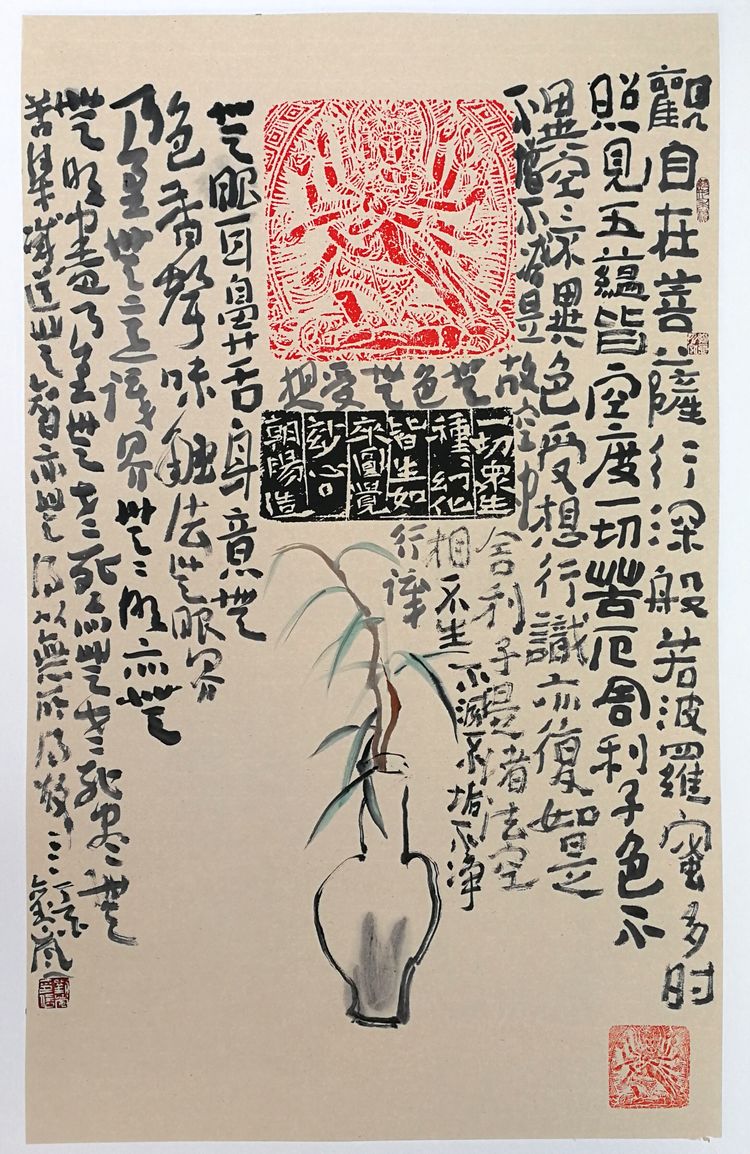 觀自在菩薩行深般若波羅蜜多时
照見五蘊皆空度一切苦厄舍利子色不
異空〻不異色受想行識亦復如是
舍利子是諸法空
相不生不滅不垢不淨
不增不減是故空中
無色無受想
行識
無眼耳鼻舌身意無
色香聲味觸法無眼界
乃至無意識界無〻明亦無
無明盡乃至無老〻死亦無老〻死盡〻無
苦集滅道無智亦無得以無所得故
一切眾生
種種幻化
皆生如
來圓覺
玅心
朝陽造